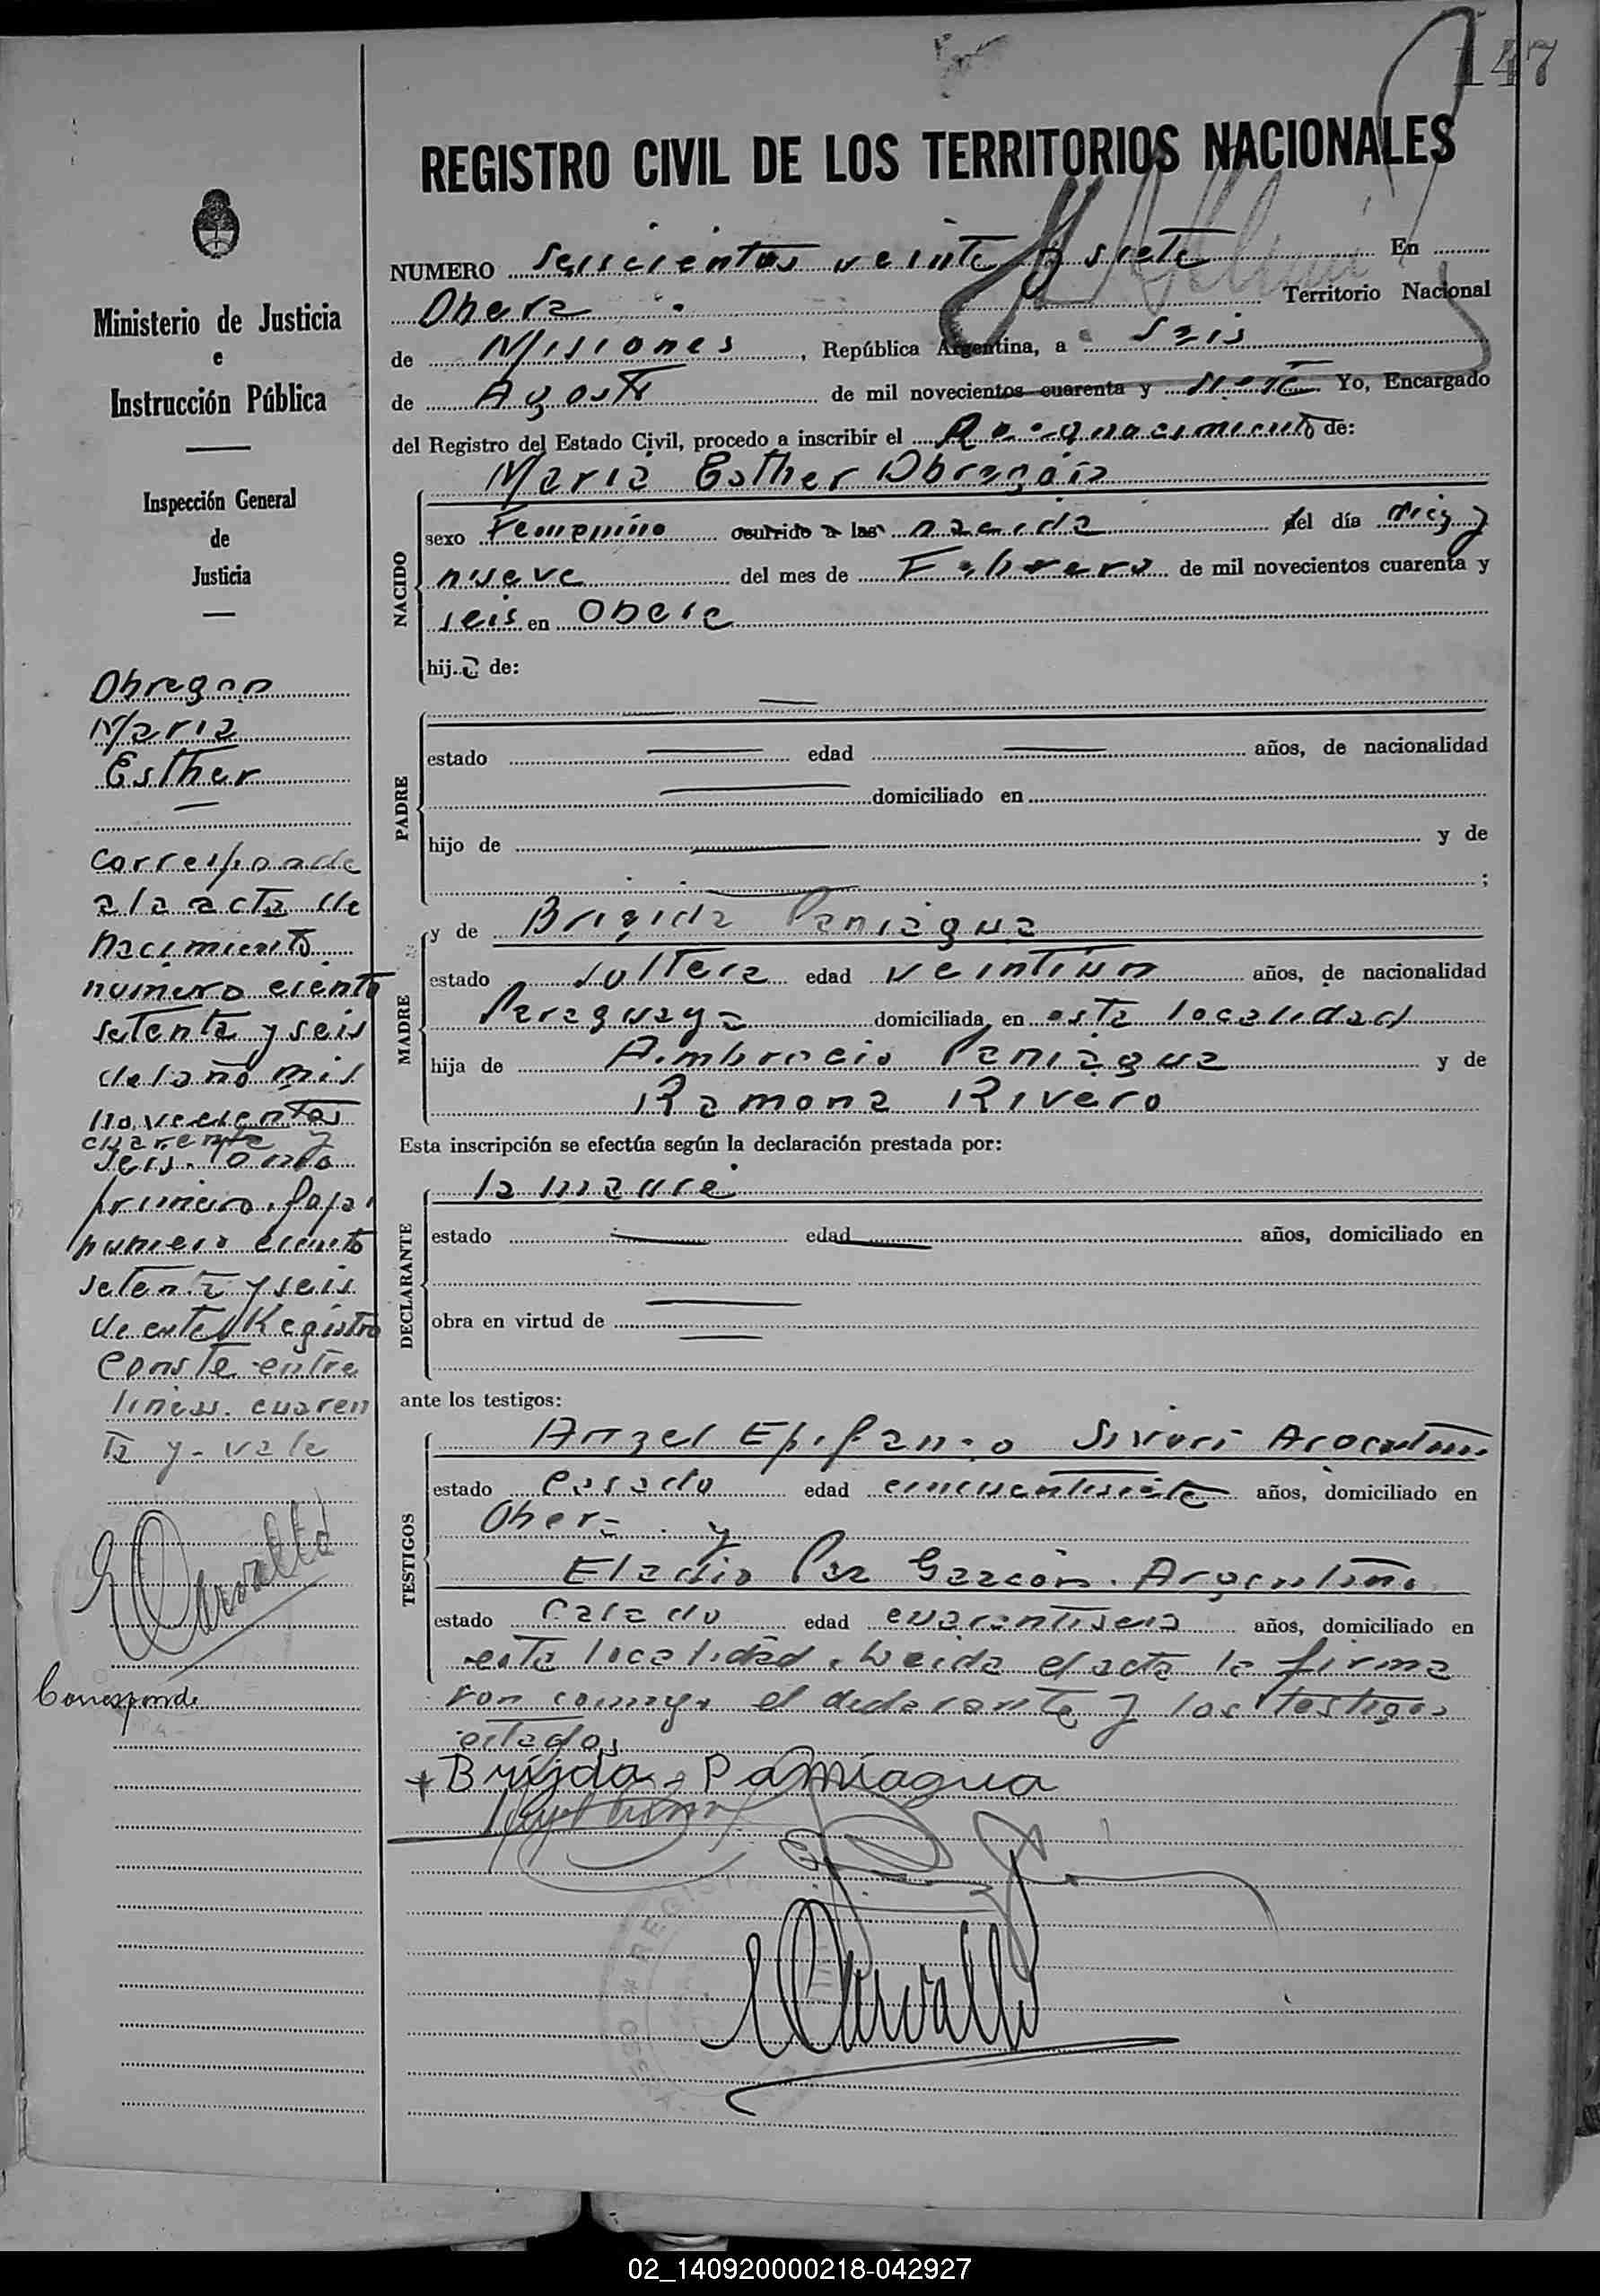 147
REGISTRO CIVIL DE LOS TERRITORIOS NACIONALES
Ministerio de Justicia
e
Instrucción Pública
Inspección General
de
Justicia
Obregon
Maria
Esther
corresponde
a la acta de
nacimiento
numero ciento
setenta y seis
del año mil
novecientos
cuarenta y
seis. Tomo
primero. foja
numero ciento
setenta y seis
de este Registro
Conste. entre
lineas. cuaren
ta y - vale
Corresponde
NUMERO seiscientos veinte y siete En
Obera Territorio Nacional
de Misiones, República Argentina, a Seis
de Agosto de mil novecientos cuarenta y siete Yo, Encargado
del Registro del Estado Civil, procedo a inscribir el Reconocimiento de:
Maria Esther Obregón
NACIDO
sexo Femenino ocurrido a las nacida del día diez y
nueve del mes de Febrero de mil novecientos cuarenta y
seis en Obera
hija de:
PADRE
estado edad años, de nacionalidad
domiciliado en
hijo de y de
;
MADRE
y de Brigida Paniagua
estado soltera edad veintiun años, de nacionalidad
Paraguaya domiciliada en esta localidad
hija de Ambrocio Paniagua y de
Ramona Rivero
Esta inscripción se efectúa según la declaración prestada por:
DECLARANTE
la madre
estado edad años, domiciliado en
obra en virtud de
ante los testigos:
TESTIGOS
Angel Epifanio Sivori Argentino
estado casado edad cincuentisiete años, domiciliado en
Obera y
Eladio Paz Garzón. Argentino
estado casado edad cuarentiseis años, domiciliado en
esta localidad. Leida el acta la firma
ron conmigo el declarante y los testigos
citados
+ Brijda Pamiagua
REGIST
02_140920000218-042927